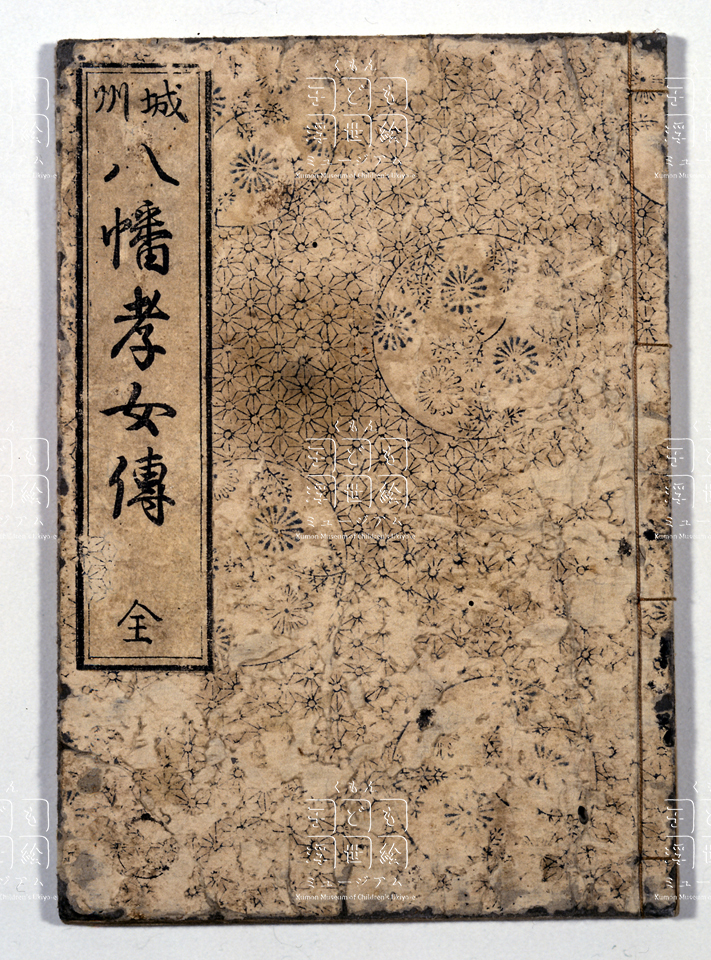 城州
八幡孝女傳
全
くもん
子ども
浮世絵
ミュージアム
Kumon Museum of Children's Ukiyo-e